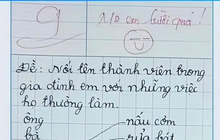 9
Mo em giỏi quá!
Đề: Nối tên thành viên trong
gia đình em với những việc
họ thường làm.
ông nấu cơm
bà rửa bát